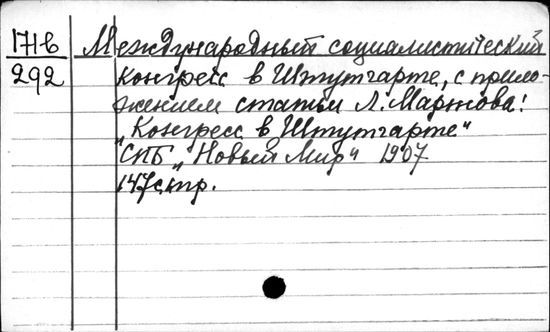 171в Международный социалистический
292 конгресс в Штутгарте, с прило-
жением статьи Л. Мартова:
„Конгресс в Штутгарте“
СПБ „Новый Мир“ 1907
147 стр.